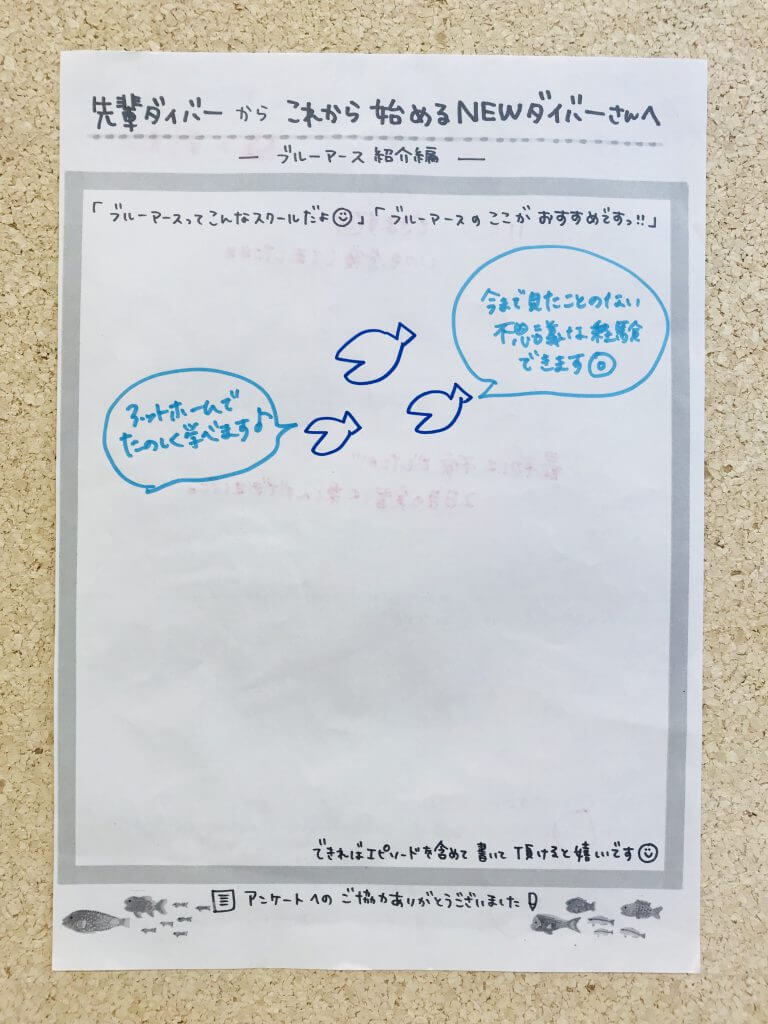 先輩ダイバーから これから 始めるNEWダイバーさんへ
― ブルーアース 紹介編 ―
「ブルーアースってこんなスクールだよ☺」「ブルーアースの ここが おすすめですっ!!」
今まで見たことのない
不思議な経験
できます◎
アットホームで
たのしく学べます♪
できればエピソードを含めて 書いて 頂けると嬉しいです☺
アンケートへの ご協力ありがとうございました